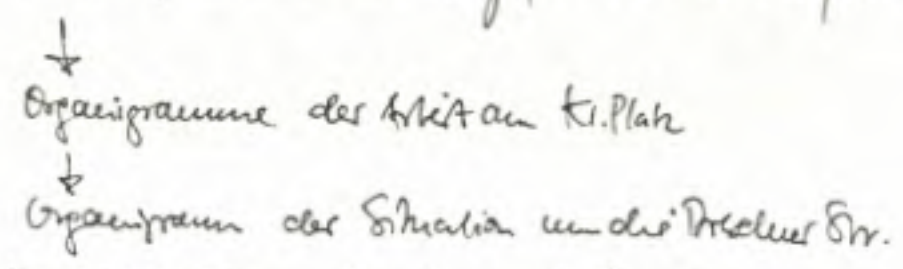 ↓
Organigramme der Arbeit am Kr.Platz
↓
Organigramm der Situation um die Dresdner Str.